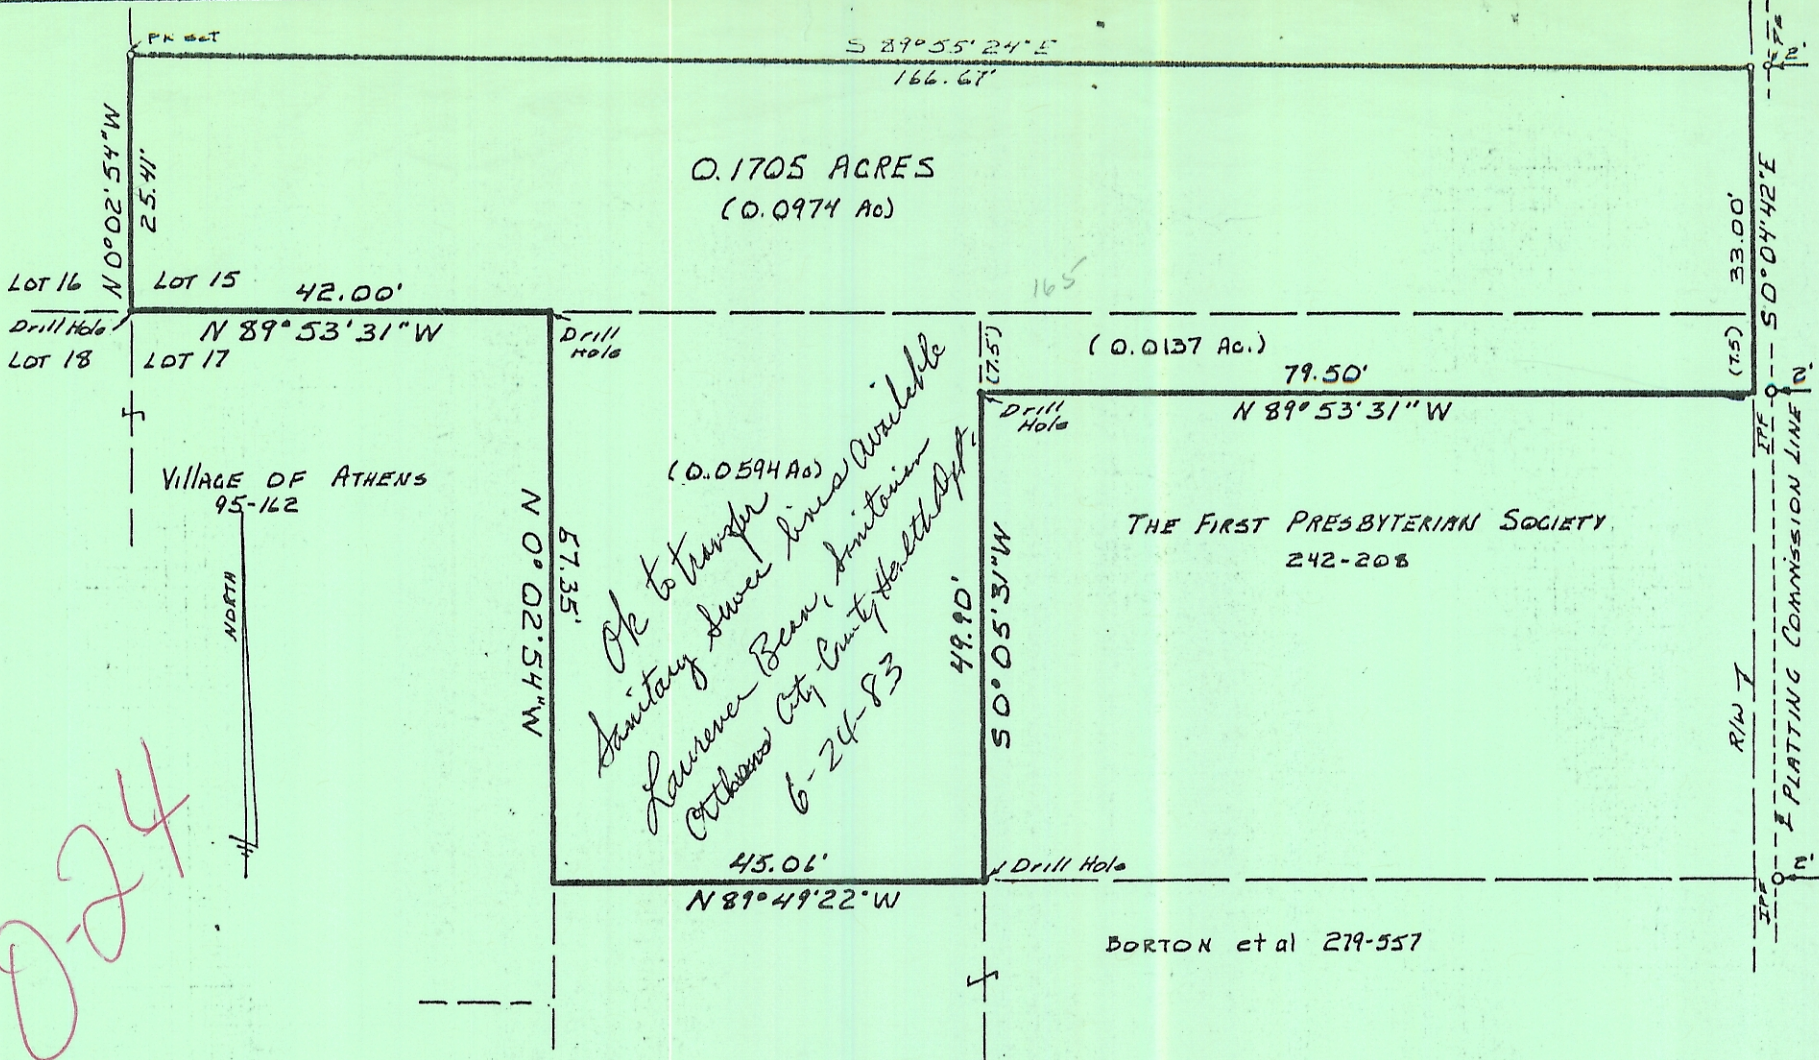 PK SET
S 89°55'24"E
166.67'
2'
N 0°02'54"W
25.41'
0.1705 ACRES
(0.0974 Ac)
33.00'
S 0°04'42"E
LOT 16
LOT 15
42.00'
165
Drill Hole
N 89°53'31"W
Drill Hole
(7.5')
(0.0137 Ac.)
(7.5)
LOT 18
LOT 17
79.50'
2'
Drill Hole
N 89°53'31"W
IPF
VILLAGE OF ATHENS
95-162
(0.0594 Ac)
N 0°02'54"W
57.35'
Ok to transfer
Sanitary Sewer lines available
Lawrence Bean, Sanitarian
Athens City-County Health Dept.
6-24-83
49.90'
S 0°05'31"W
THE FIRST PRESBYTERIAN SOCIETY
242-208
NORTH
R/W
PLATTING COMMISSION LINE
45.06'
N 89°49'22"W
Drill Hole
2'
IPF
BORTON et al 279-557
0-24